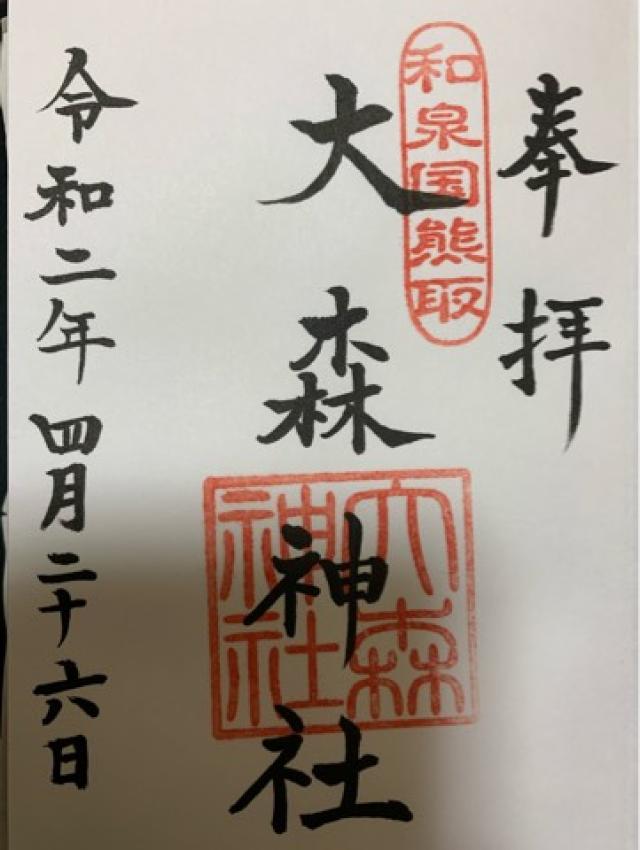 奉拝
和泉国熊取
大森神社
大森神社
令和二年四月二十六日